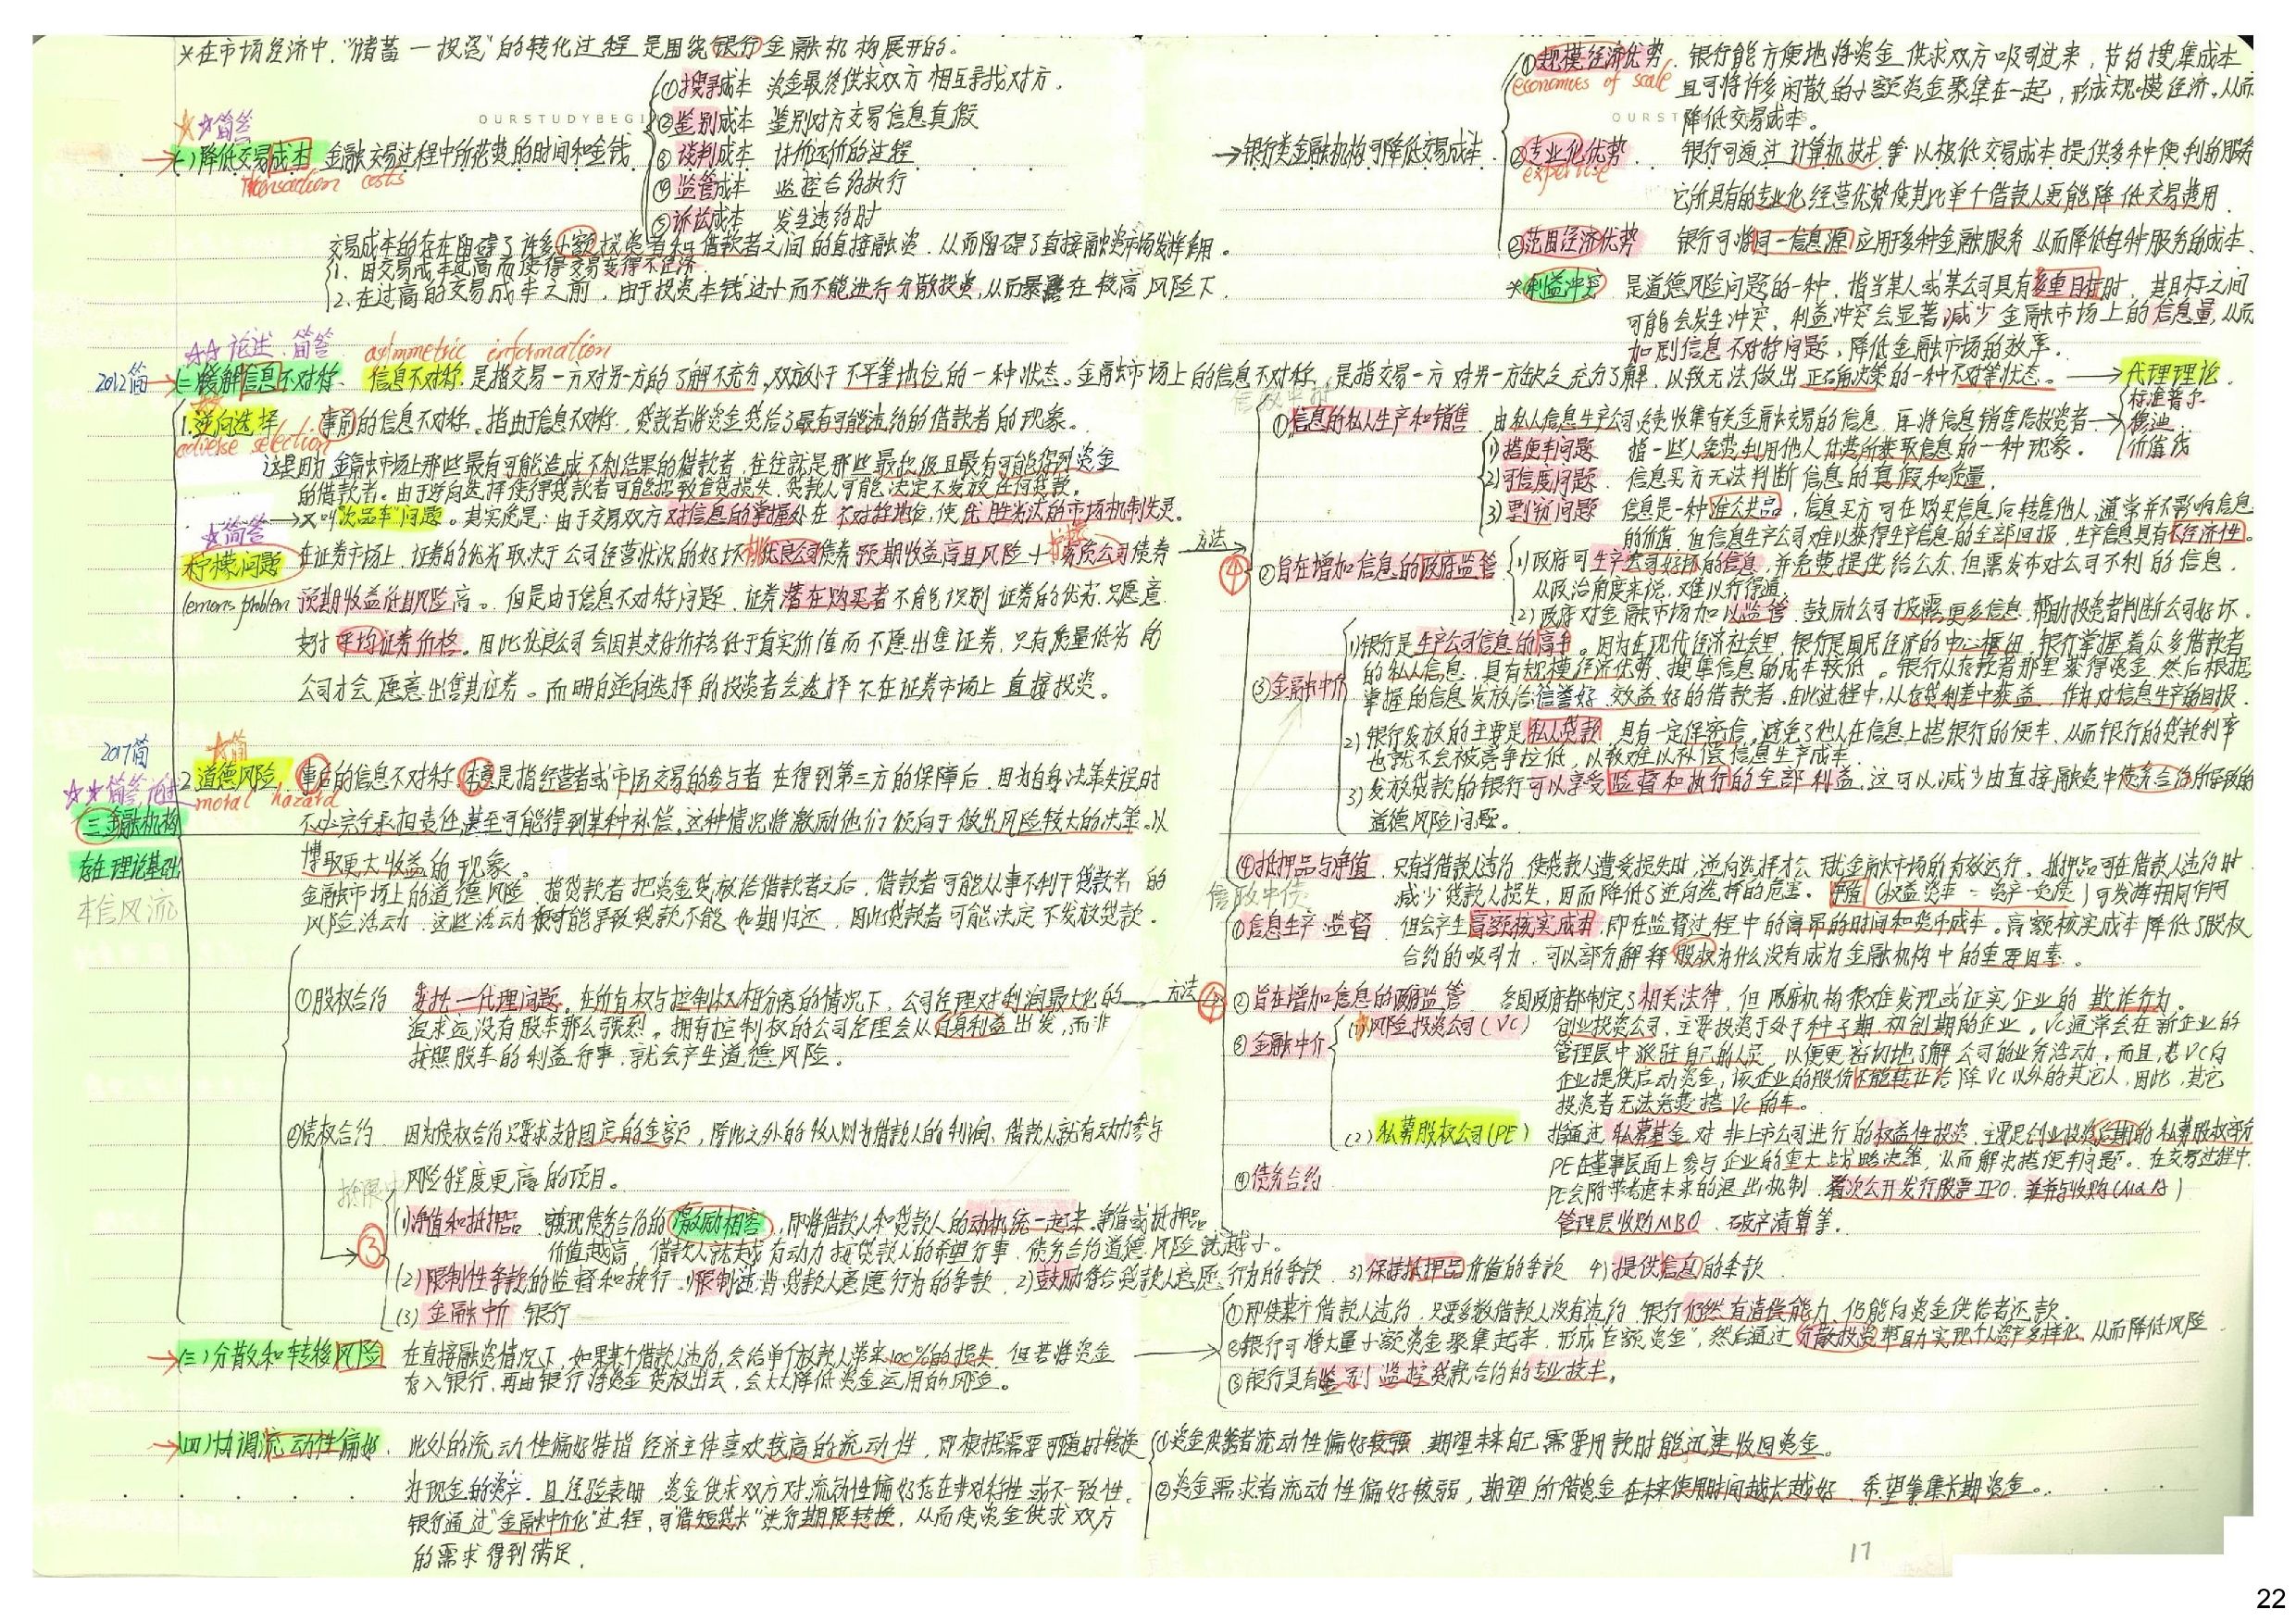 *在市场经济中，“储蓄—投资”的转化过程是围绕银行金融机构展开的。
OURSTUDYBEGI
☆☆简答
(一)降低交易成本 金融交易过程中所花费的时间和金钱
Transaction costs
①搜寻成本 资金最终供求双方相互寻找对方。
②鉴别成本 鉴别对方交易信息真假
③谈判成本 讨价还价的过程
④监管成本 监控合约执行
⑤诉讼成本 发生违约时
交易成本的存在阻碍了许多小额投资者和借款者之间的直接融资，从而阻碍了直接融资市场发挥作用。
1. 因交易成本过高而使得交易变得不经济.
2. 在过高的交易成本之前，由于投资本钱过小而不能进行分散投资，从而暴露在较高风险下.
→银行类金融机构可降低交易成本.
①规模经济优势. 银行能方便地将资金供求双方吸引过来，节约搜集成本
economies of scale 且可将许多闲散的小额资金聚集在一起，形成规模经济，从而
降低交易成本。
②专业化优势. 银行可通过计算机技术等以极低交易成本提供多种便利的服务
expertise
它所具有的专业化经营优势使其比单个借款人更能降低交易费用.
③范围经济优势 银行可将同一信息源应用于多种金融服务 从而降低每种服务的成本.
*利益冲突 是道德风险问题的一种，指当某人或某公司具有多重目标时，其目标之间
可能会发生冲突. 利益冲突会显著减少金融市场上的信息量，从而
加剧信息不对称问题，降低金融市场的效率.
☆☆论述.简答 asymmetric information
2012简→(二)缓解信息不对称. 信息不对称.是指交易一方对另一方的了解不充分，双方处于不平等地位的一种状态。金融市场上的信息不对称，是指交易一方对另一方缺乏充分了解，以致无法做出正确决策的一种不对等状态。→代理理论.
1.逆向选择 事前的信息不对称。指由于信息不对称，贷款者将资金贷给了最有可能违约的借款者的现象。
adverse selection
这是因为金融市场上那些最有可能造成不利结果的借款者，往往就是那些最积极且最有可能得到资金
的借款者。由于逆向选择使得贷款者可能招致信贷损失，贷款人可能决定不发放任何贷款。
→又叫“次品车”问题。其实质是：由于交易双方对信息的掌握处在不对称地位，使优胜劣汰的市场机制失灵.
☆简答
柠檬问题 在证券市场上，证券的优劣取决于公司经营状况的好坏 优良公司债券预期收益高且风险小 劣质公司债券
lemons problem 预期收益低且风险高。但是由于信息不对称问题，证券潜在购买者不能识别证券的优劣.只愿意
支付平均证券价格。因此优良公司会因其支付价格低于真实价值而不愿出售证券，只有质量低劣的
公司才会愿意出售其证券。而明白逆向选择的投资者会选择不在证券市场上直接投资。
方法
①信息的私人生产和销售 由私人信息生产公司负责收集有关金融交易的信息，再将信息销售给投资者→标准普尔 穆迪 价值线
1)搭便车问题 指一些人免费利用他人付费所获取信息的一种现象。
2)可信度问题. 信息买方无法判断信息的真假和质量.
3)剽窃问题 信息是一种准公共品，信息买方可在购买信息后转售他人，通常并不影响信息
的价值 但信息生产公司难以获得生产信息的全部回报，生产信息具有不经济性。
②旨在增加信息的政府监管 1)政府可生产公司好坏的信息，并免费提供给公众，但需发布对公司不利的信息.
从政治角度来说，难以行得通.
2)政府对金融市场加以监管，鼓励公司披露更多信息，帮助投资者判断公司好坏.
③金融中介
1)银行是生产公司信息的高手。因为在现代经济社会里，银行是国民经济的中心枢纽，银行掌握着众多借款者
的私人信息，具有规模经济优势，搜集信息的成本较低。银行从存款者那里获得资金，然后根据
掌握的信息发放给信誉好.效益好的借款者，在此过程中，从存贷利差中获益，作为对信息生产的回报.
2)银行发放的主要是私人贷款，具有一定保密信，避免了他人在信息上搭银行的便车，从而银行的贷款利率
也就不会被竞争拉低，以致难以补偿信息生产成本.
3)发放贷款的银行可以享受监督和执行的全部利益，这可以减少由直接融资中债务合约所导致的
道德风险问题。
④抵押品与净值 只有当借款人违约，使贷款人遭受损失时，逆向选择才会干扰金融市场的有效运行。抵押品可在借款人违约时
减少贷款人损失，因而降低了逆向选择的危害。净值(权益资本=资产-负债)可发挥相同作用
2017简
☆☆简答 论述
三.金融机构
存在理论基础
本信风流
☆简
2.道德风险，事后的信息不对称 本意是指经营者或市场交易的参与者在得到第三方的保障后，因为自身决策失误时
moral hazard
不必完全承担责任，甚至可能得到某种补偿，这种情况将激励他们倾向于做出风险较大的决策。以
博取更大收益的现象。
金融市场上的道德风险，指贷款者把资金贷放给借款者之后，借款者可能从事不利于贷款者的
风险活动，这些活动极可能导致贷款不能如期归还，因此贷款者可能决定不发放贷款.
①股权合约 委托—代理问题，在所有权与控制权相分离的情况下，公司经理对利润最大化的
追求远没有股东那么强烈。拥有控制权的公司经理会从自身利益出发，而非
按照股东的利益行事，就会产生道德风险。
方法
信政中债
①信息生产：监督 但会产生高额核实成本，即在监督过程中的高昂的时间和货币成本。高额核实成本降低了股权
合约的吸引力，可以部分解释股权为什么没有成为金融机构中的重要因素.
②旨在增加信息的政府监管 各国政府都制定了相关法律，但政府机构很难发现或证实企业的欺诈行为.
③金融中介
(1)风险投资公司(VC) 创业投资公司，主要投资于处于种子期.初创期的企业。VC通常会在新企业的
管理层中派驻自己的人员，以便更密切地了解公司的业务活动，而且，若VC向
企业提供启动资金，该企业的股份不能转让给除VC以外的其它人，因此，其它
投资者无法免费搭VC的车。
(2)私募股权公司(PE) 指通过私募基金对非上市公司进行的权益性投资，主要是创业投资后期的私募股权部分
PE在董事层面上参与企业的重大战略决策，从而解决搭便车问题。在交易过程中
PE会附带考虑未来的退出机制，首次公开发行股票IPO，兼并与收购(M&A)
管理层收购MBO、破产清算等.
④债务合约
②债权合约. 因为债权合约只要求支付固定的金额，除此之外的收入则为借款人的利润，借款人就有动力参与
风险程度更高的项目。
③
(1)净值和抵押品 实现债务合约的激励相容，即将借款人和贷款人的动机统一起来，净值或抵押品
价值越高，借款人就越有动力按贷款人的希望行事，债务合约道德风险就越小。
(2)限制性条款的监督和执行 1)限制违背贷款人意愿行为的条款 2)鼓励符合贷款人意愿行为的条款 3)保持抵押品价值的条款 4)提供信息的条款.
(3)金融中介 银行
→(三)分散和转移风险 在直接融资情况下，如果某个借款人违约，会给单个放款人带来100%的损失，但若将资金
存入银行，再由银行将资金贷放出去，会大大降低资金运用的风险。
①即使某个借款人违约，只要多数借款人没有违约，银行仍然有清偿能力，仍能向资金供给者还款.
②银行可将大量小额资金聚集起来，形成“巨额资金”，然后通过分散投资帮助实现个人资产多样化，从而降低风险
③银行具有鉴别、监控贷款合约的专业技术.
→(四)协调流动性偏好. 此处的流动性偏好特指经济主体喜欢较高的流动性，即根据需要可随时转换
为现金的资产.且经验表明，资金供求双方对流动性偏好存在非对称性或不一致性.
银行通过“金融中介化”过程，可“借短贷长”进行期限转换，从而使资金供求双方
的需求得到满足.
①资金供给者流动性偏好较强，期望未来自己需要用款时能迅速收回资金。
②资金需求者流动性偏好较弱，期望所借资金在未来使用时间越长越好，希望筹集长期资金。
17
22